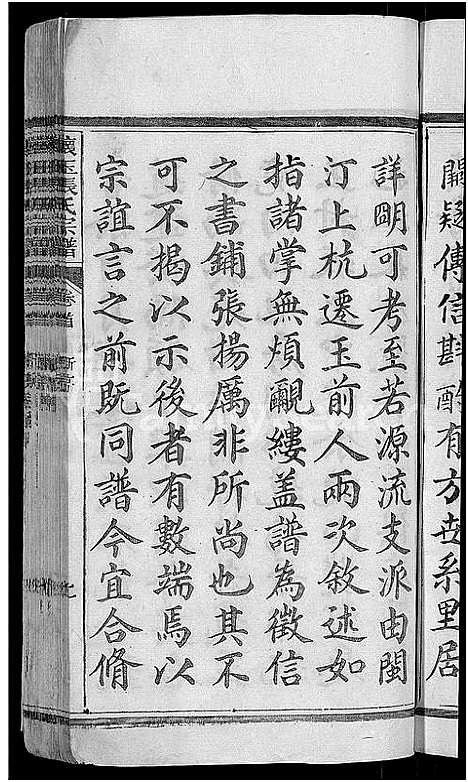 闕疑傳信斟酌有方世系里居
詳明可考至若源流支派由閩
汀上杭遷玉前人兩次敘述如
指諸掌無煩覼縷盖譜為徵信
之書鋪張揚厲非所尚也其不
可不揭以示後者有數端焉以
宗誼言之前既同譜今宜合脩
懷玉張氏宗譜
卷首
新序